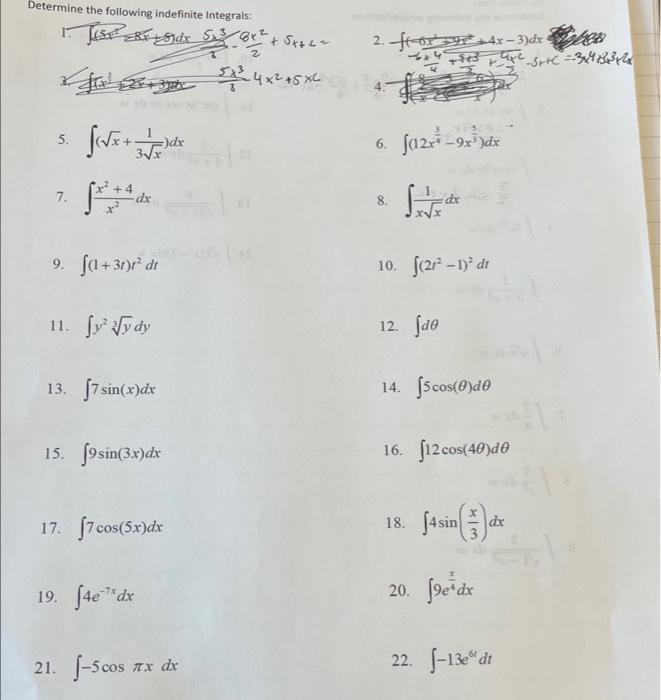 Determine the following indefinite Integrals:
1. ∫(5x² − 8x + 5)dx 5x³/3 − 8x²/2 + 5x + C =
2. ∫(−6x³ + 9x² + 4x − 3)dx
3. 5x³/3 4x² + 5x C
4.
5. ∫(√x + 1/(3√x))dx
6. ∫(12x^(3/4) − 9x^(5/3))dx
7. ∫(x² + 4)/x² dx
8. ∫1/(x√x) dx
9. ∫(1 + 3t)t² dt
10. ∫(2t² − 1)² dt
11. ∫y² ∛y dy
12. ∫dθ
13. ∫7 sin(x)dx
14. ∫5 cos(θ)dθ
15. ∫9 sin(3x)dx
16. ∫12 cos(4θ)dθ
17. ∫7 cos(5x)dx
18. ∫4 sin(x/3)dx
19. ∫4e^(−7x)dx
20. ∫9e^(x/4)dx
21. ∫−5 cos πx dx
22. ∫−13e^(6t) dt